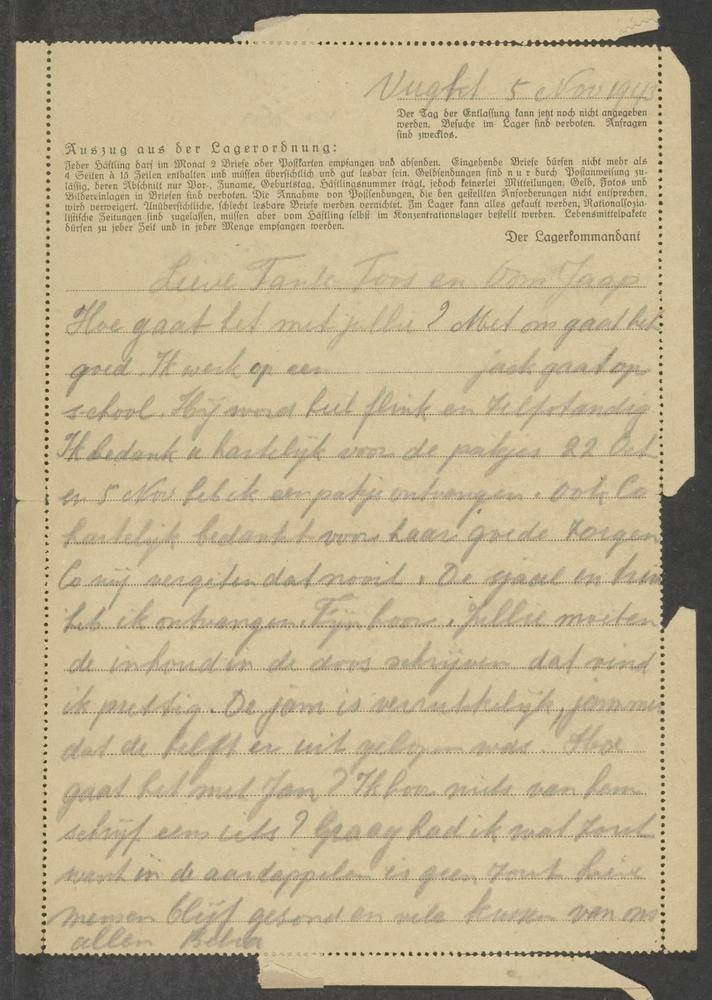 Vught 5 Nov 1943
Der Tag der Entlassung kann jetzt noch nicht angegeben
werden. Besuche im Lager sind verboten. Anfragen
sind zwecklos.
Auszug aus der Lagerordnung:
Jeder Häftling darf im Monat 2 Briefe oder Postkarten empfangen und absenden. Eingehende Briefe dürfen nicht mehr als
4 Seiten à 15 Zeilen enthalten und müssen übersichtlich und gut lesbar sein. Geldsendungen sind nur durch Postanweisung zu-
lässig, deren Abschnitt nur Vor-, Zuname, Geburtstag, Häftlingsnummer trägt, jedoch keinerlei Mitteilungen. Geld, Fotos und
Bildereinlagen in Briefen sind verboten. Die Annahme von Postsendungen, die den gestellten Anforderungen nicht entsprechen,
wird verweigert. Unübersichtliche, schlecht lesbare Briefe werden vernichtet. Im Lager kann alles gekauft werden. Nationalsozia-
listische Zeitungen sind zugelassen, müssen aber vom Häftling selbst im Konzentrationslager bestellt werden. Lebensmittelpakete
dürfen zu jeder Zeit und in jeder Menge empfangen werden.
Der Lagerkommandant
Lieve Tante Toos en Oom Jaap
Hoe gaat het met jullie? Met ons gaat het
goed. Ik werk op een jack gaat op
school. Hij word heel flink en zelfstandig
Ik bedank u hartelijk voor de pakjes 22 Oct
en 5 Nov heb ik een pakje ontvangen. Ook Co
hartelijk bedankt voor haar goede zorgen
Co wij vergeten dat nooit. De sjaal en
heb ik ontvangen. Fijn hoor. Jullie moeten
de inhoud in de doos schrijven dat vind
ik prettig. De jam is verrukkelijk, jammer
dat de helft er uit gelopen was. Hoe
gaat het met Jan? Ik hoor niets van hem
schrijf eens iets? Graag had ik wat zout
want in de aardappelen is geen zout Lieve
mensen blijf gezond en vele kussen van ons
allen